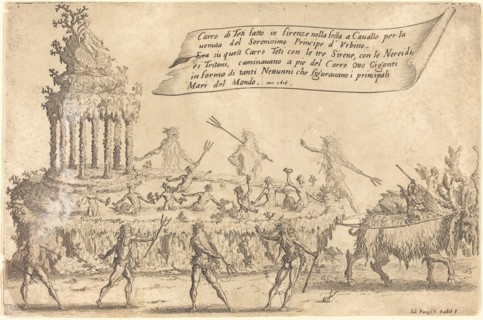 Carro di Teti fatto in firenze nella festa a Cauallo per la
uenuta del Serenissimo Principe d'Vrbino.
Era sù questo Carro Teti con le tre Sirene, con le Nereidi,
et Tritoni, caminauano a pie del Carro Otto Giganti
in forma di tanti Nettunni che figurauano i principali
Mari del Mondo.
Iul. Parigi I. Callot F.